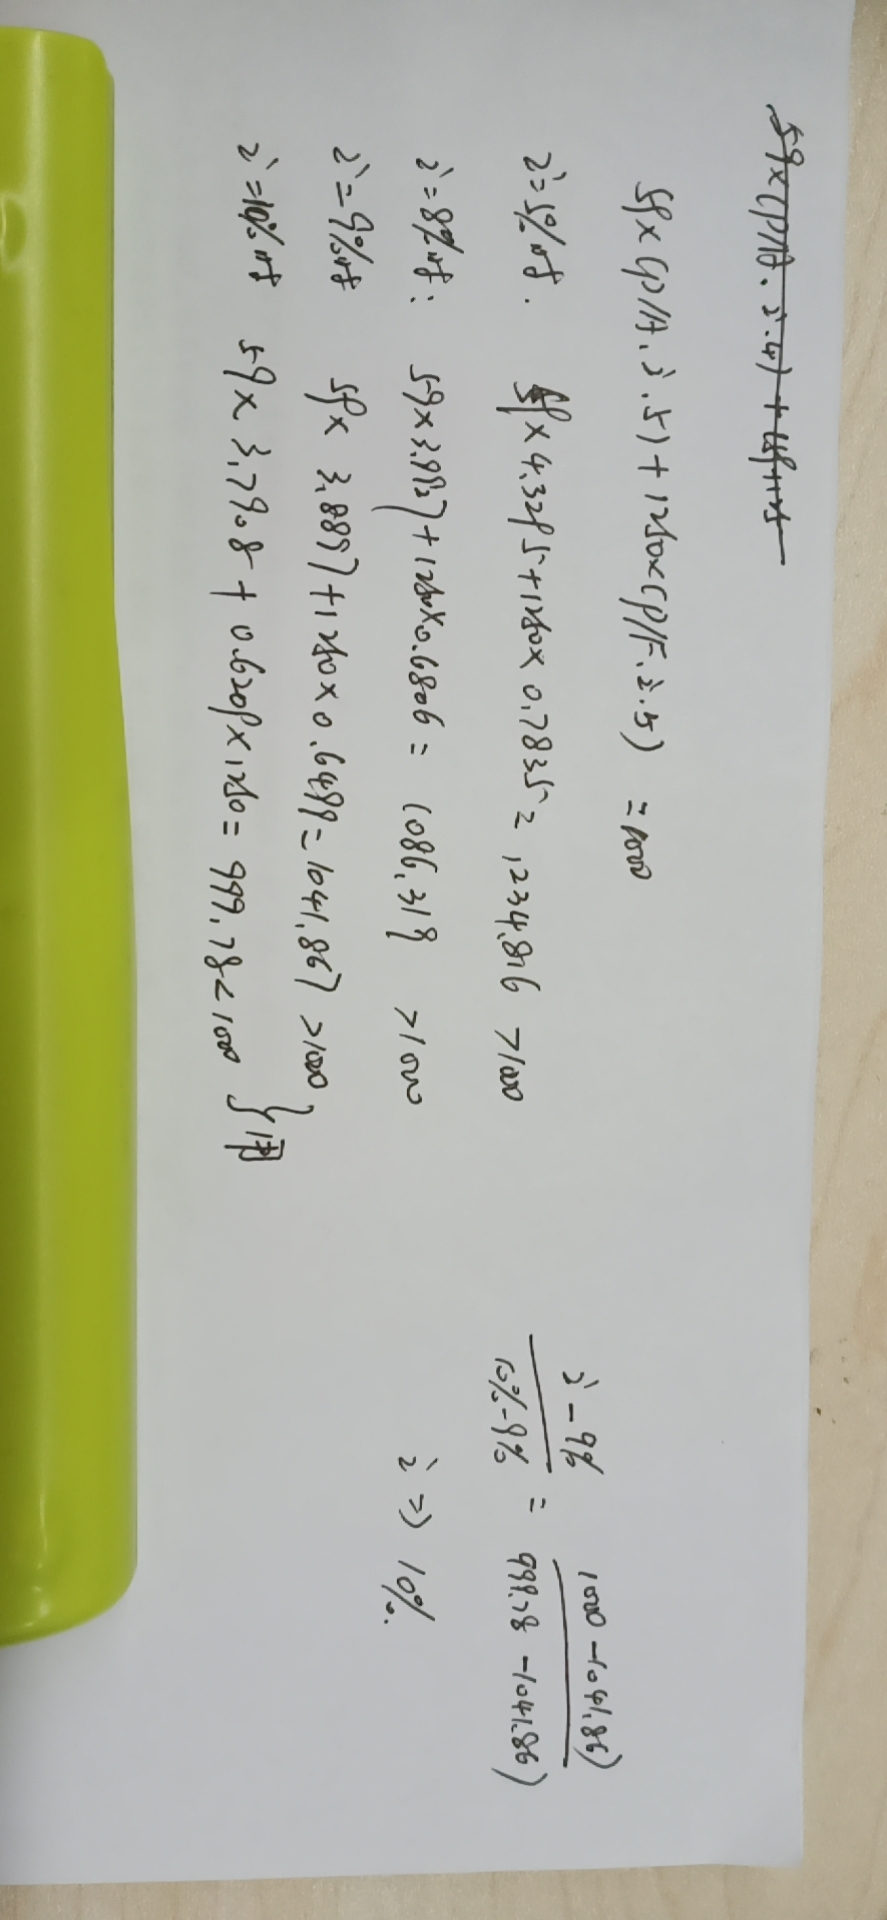 59×(P/A.i.5)+1250×(P/F.i.5) =1000
i=5%时. 59×4.3295+1250×0.7835=1234.816 >1000
i=8%时: 59×3.9927+1250×0.6806= 1086.319 >1000
i=9%时 59×3.8897+1250×0.6499=1041.867>1000
i=10%时 59×3.7908+0.6209×1250=999.78<1000 }用
i-9% / 10%-9% = 1000-1041.867 / 999.78-1041.867
i=> 10%.